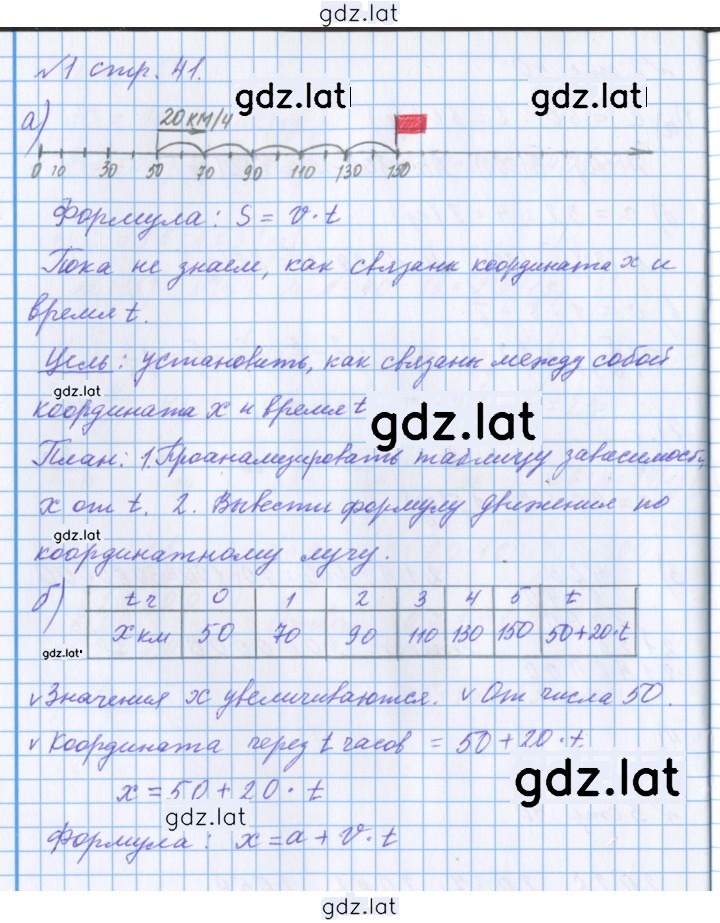 gdz.lat
№1 стр. 41.
gdz.lat gdz.lat
а) 20 км/ч
0 10 30 50 70 90 110 130 150
Формула: S = v · t
Пока не знаем, как связаны координата x и
время t.
Цель: установить, как связаны между собой
gdz.lat
координата x и время t
gdz.lat
План: 1. Проанализировать таблицу зависимости
x от t. 2. Вывести формулу движения по
gdz.lat
координатному лучу.
б) t ч 0 1 2 3 4 5 t
x км 50 70 90 110 130 150 50+20·t
gdz.lat
v Значения x увеличиваются. v От числа 50.
v Координата через t часов = 50 + 20 · t
gdz.lat
x = 50 + 20 · t
gdz.lat
Формула: x = a + v · t
gdz.lat